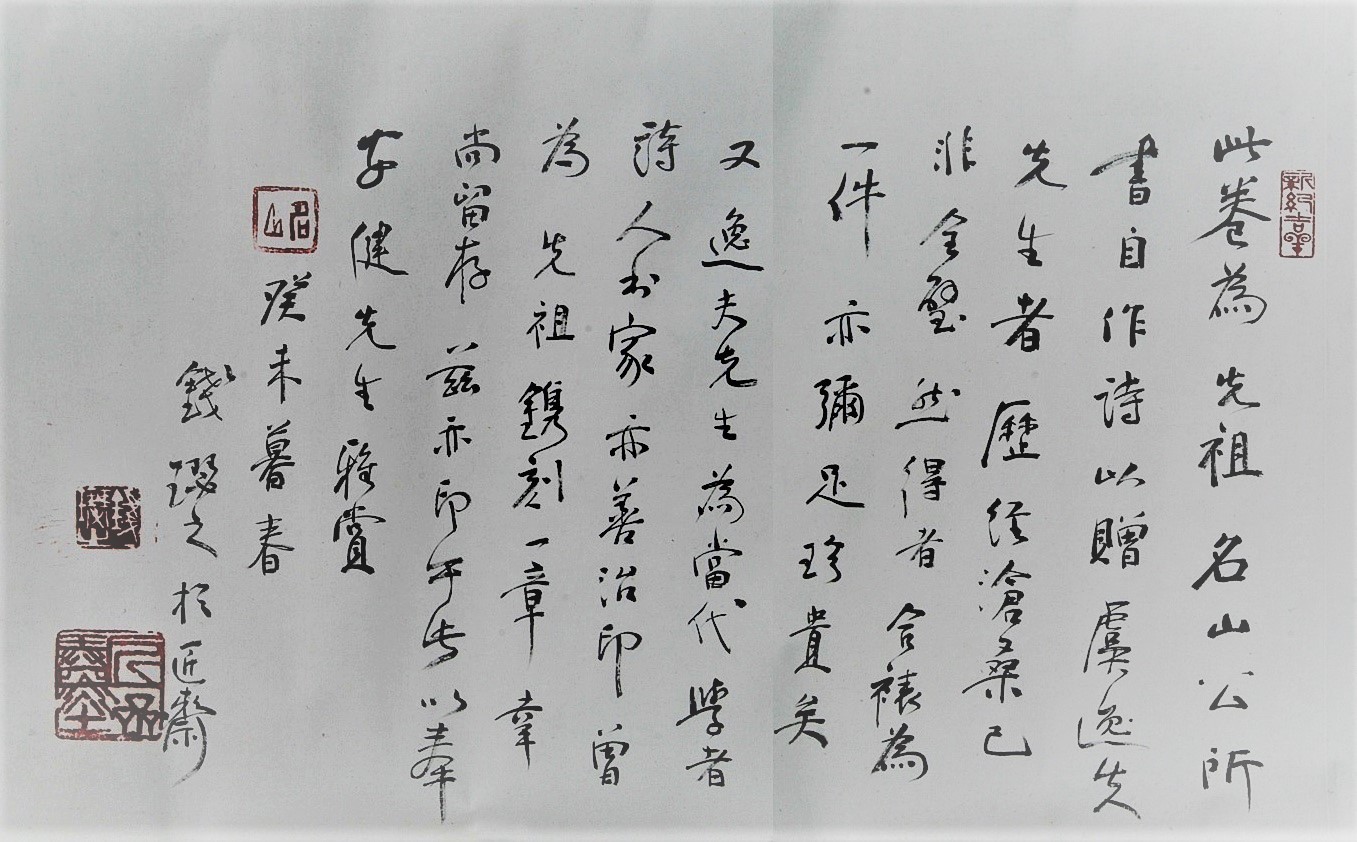 此卷為先祖名山公所
書自作詩以贈虞逸夫
先生者歷經滄桑已
非全璧然得者合裱為
一件亦彌足珍貴矣
又逸夫先生為當代學者
詩人书家亦善治印曾
為先祖鐫刻一章章
尚留存茲亦印于此以奉
健先生雅賞
名山
癸未暮春
錢璱之於匠齋